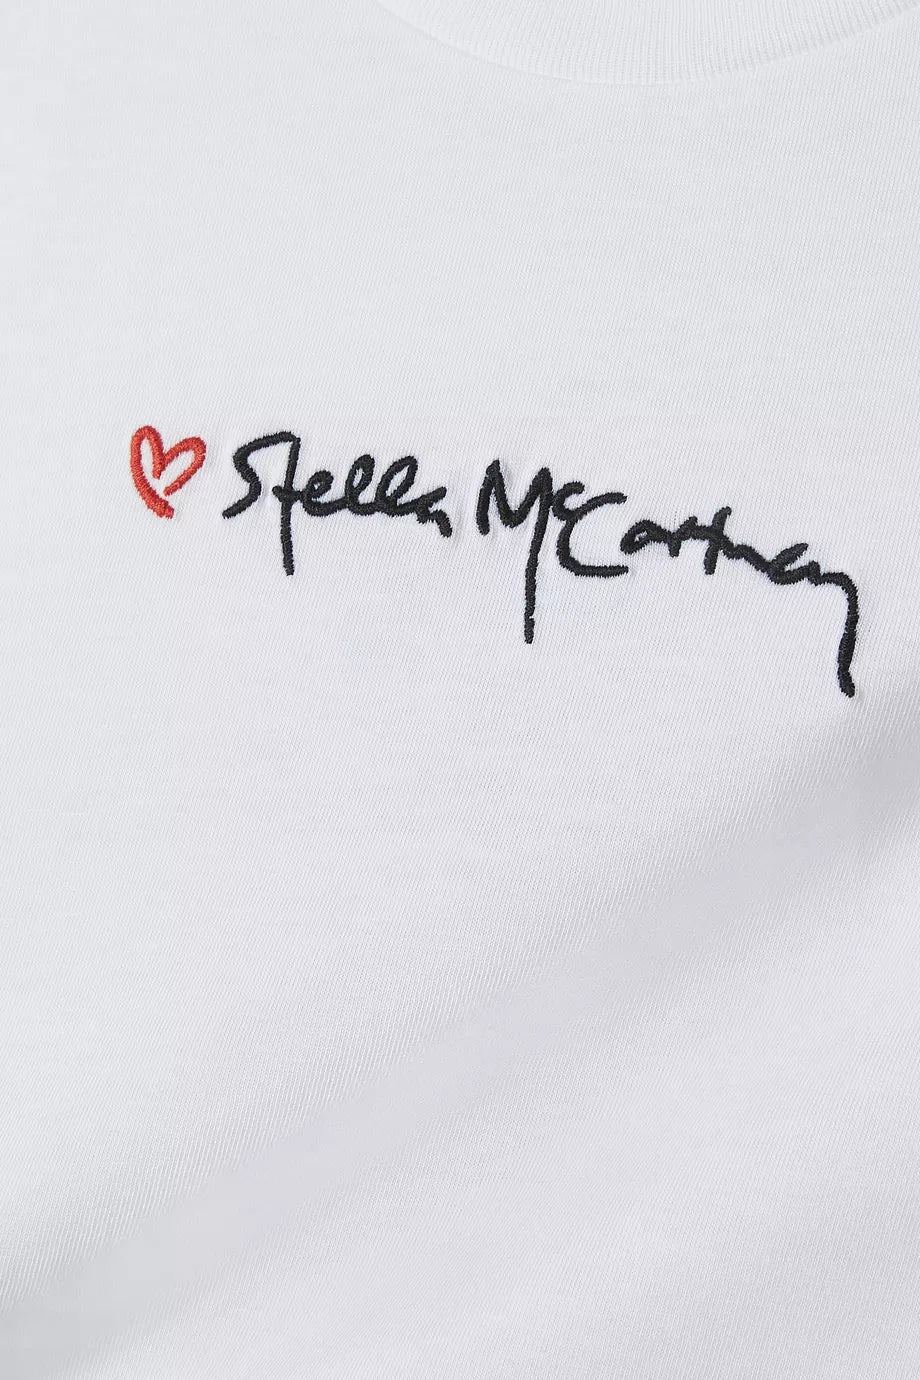 Stella McCartney